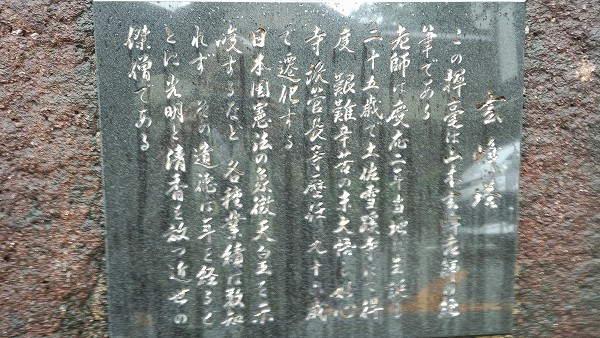 玄峰塔
この揮毫は山本玄峰老師の絶
筆である
老師は慶応二年当地に生誕し
二十五歳で土佐雪蹊寺にて得
度 艱難辛苦の末大悟し妙心
寺派管長等歴任 九十六歳
で遷化する
日本国憲法の象徴天皇を示
唆するなど 各種業績は数知
れず その遺徳は年を経るご
とに光明と清香を放つ近世の
傑僧である